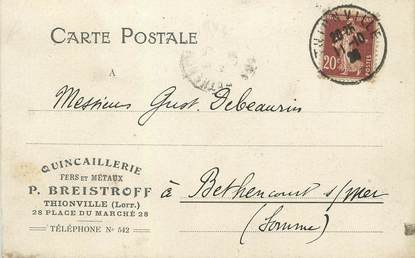 CARTE POSTALE
THIONVILLE
20c
POSTES
A
Messieurs Gust. Debeaurin
QUINCAILLERIE
FERS ET MÉTAUX
P. BREISTROFF
THIONVILLE (Lorr.)
28 PLACE DU MARCHÉ 28
TÉLÉPHONE No 542
à Bethencourt s/mer
(Somme)